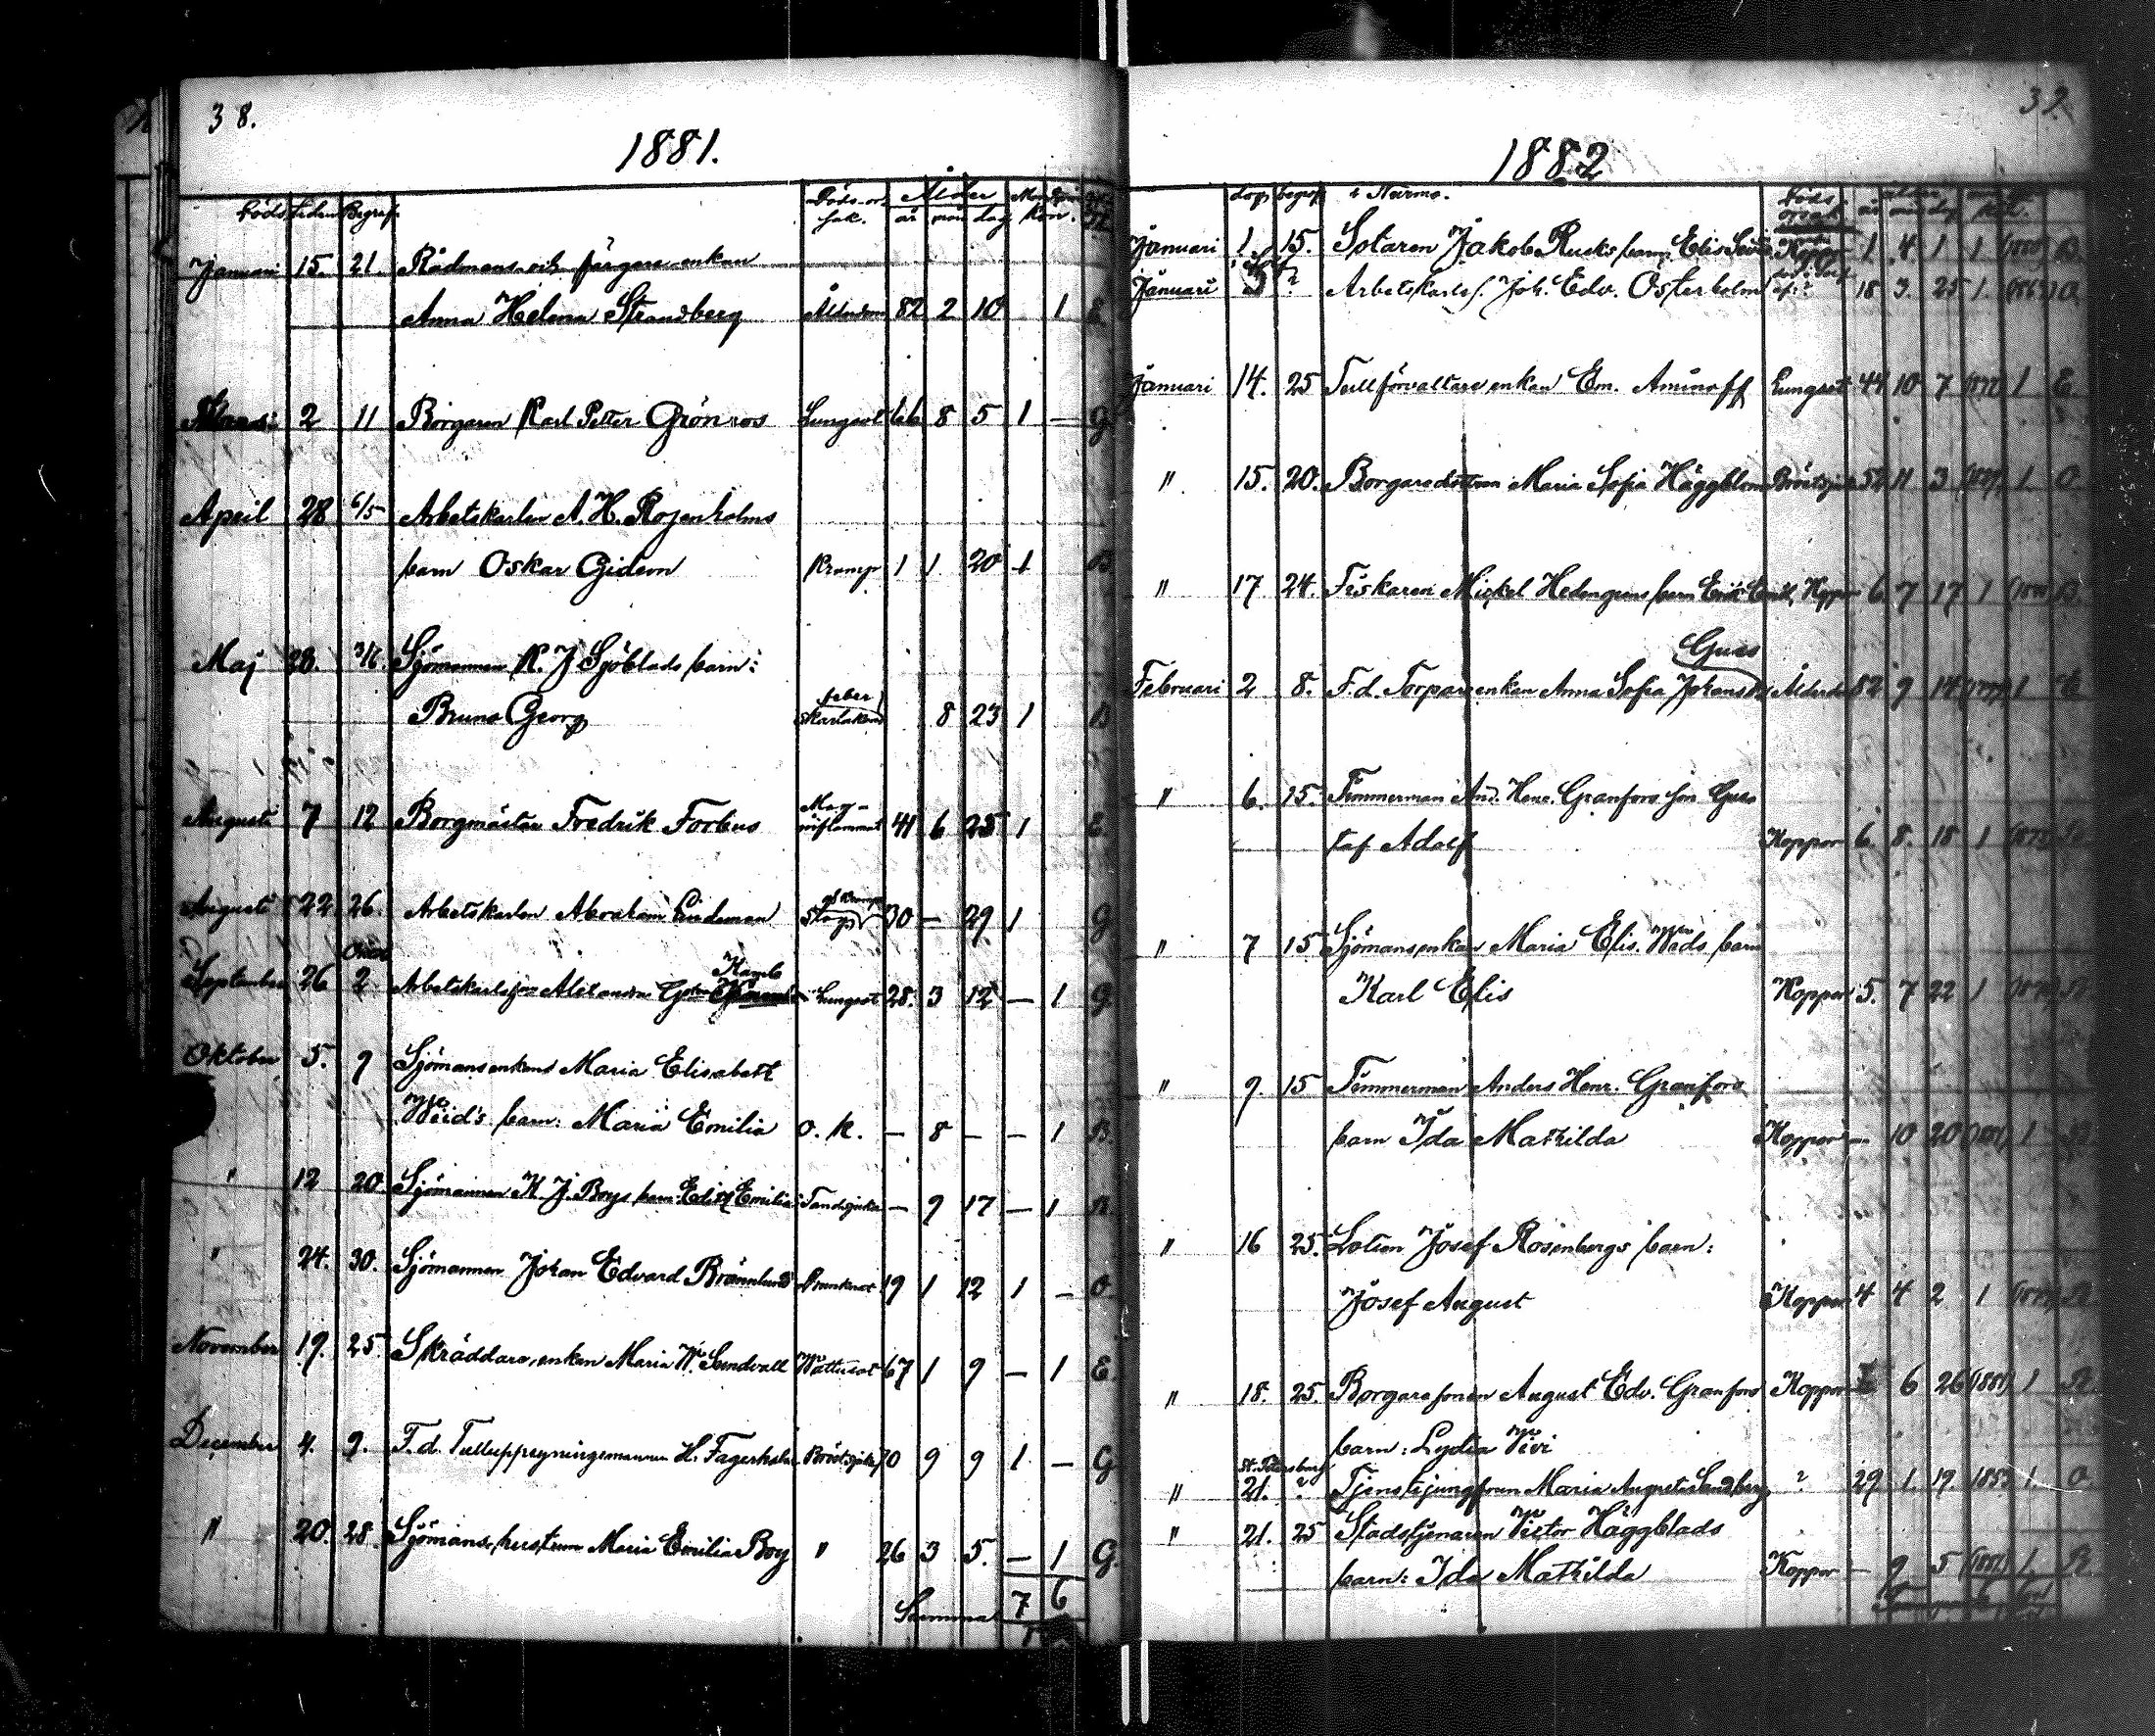 38.
1881.
Döds Tiden Begraf.
Döds-or-
sak.
Ålder
år mån dag
Man Qvin
kön.
Januari 15. 21. Rådmans och färgare enkan
Anna Helena Strandberg Ålderdom 82 2 10 1 E
2 11 Borgaren Karl Petter Grönroos Lungsot 66 8 5 1 — G
April 28 6/5 Arbetskarlen A. H. Rosenholms
barn Oskar Gideon Kramp 1 1 20 1 B
Maj 28. 3/6. Sjömannen K. J Sjöblads barn:
feber
Bruno Georg Skarlakans 8 23 1 B
Augusti 7 12 Borgmästar Fredrik Forbus 41 6 25 1 E.
Mag-
inflammat
Augusti 22 26. Arbetskarlen Abraham Lindeman 30 — 29 1 G
Slag
September 26 2. Arbetskarls Alexandra Lungsot 28. 3 12 — 1 G
Oktober 5. 9 Sjömansenkans Maria Elisabeth
barn: Maria Emilia o. k. — 8 — — 1 B.
" 12 20 Sjömannen K. J. Boys barn: Edith Emilia Tandsjuka — 9 17 — 1
" 24. 30. Sjömannen Johan Edvard Brännlund Drunknat 19 1 12 1 — O
November 19. 25. Skräddare, enkan Maria W. Sundvall Vattusot 67 1 9 — 1 E
December 4. 9. F. d. Tulluppsyningsmannen H. Fagerholm Bröstsjukd 70 9 9 1. — G
" 20. 28. Sjömans, hustrun Maria Emilia Boy " 26 3 5. — 1 G.
Summa 7 6
39.
1882
dog begraf Namn.
Döds
orsak
Januari 1. 15. Sotaren Jakob Rucks barn Elis Koppor 1 4 1 1 B.
Januari ? Arbetskarls s. Joh. Edv. Österholm 18 3. 25 1. O
Januari 14. 25 Tullförvaltare enkan Em. Aminoff Lungsot 44 10 7 1 E.
" 15. 20. Borgaredottren Maria Sofia Häggblom Bröstsjuk 52 11 3 1 O
" 17 24. Fiskaren Mickel Hedengrens barn Erik Emil, Koppor 6 7 17 1 B.
Gus
Februari 2 8. F. d. Torpare enkan Anna Sofia Johansd. Ålderdom 82 9 14 1
" 6. 15. Timmerman And. Henr. Granfors son Gus
taf Adolf Koppor 6. 8. 18 1
" 7 15 Sjömansenkan Maria Elis. Wads barn
Karl Elis Koppor 5. 7 22 1
" 9. 15 Timmerman Anders Henr. Granfors
barn Ida Mathilda Koppor — 10 20 1
" 16 25. Lotsen Josef Rosenbergs barn:
Josef August Koppor 4 4 2 1
" 18. 25. Borgaresonen August Edv. Granfors Koppor 6 26 (1881) 1
barn: Lydia Vivi
St. Petersburg
" 21. " Tjenstejungfrun Maria Augusta Sandberg ? 29 1. 19. 1853 1. O
" 21. 25 Stadstjenaren Victor Häggblads
barn: Ida Mathilda Koppor — 9 5 (1881) 1.